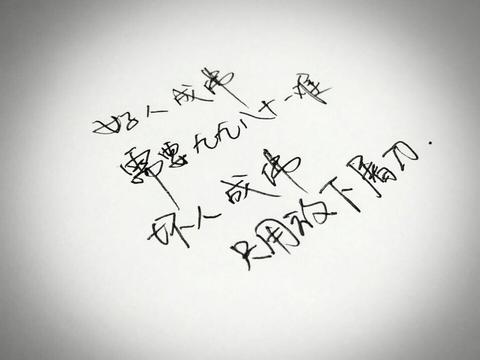 好人成佛
需要九九八十一难
坏人成佛
只用放下屠刀.